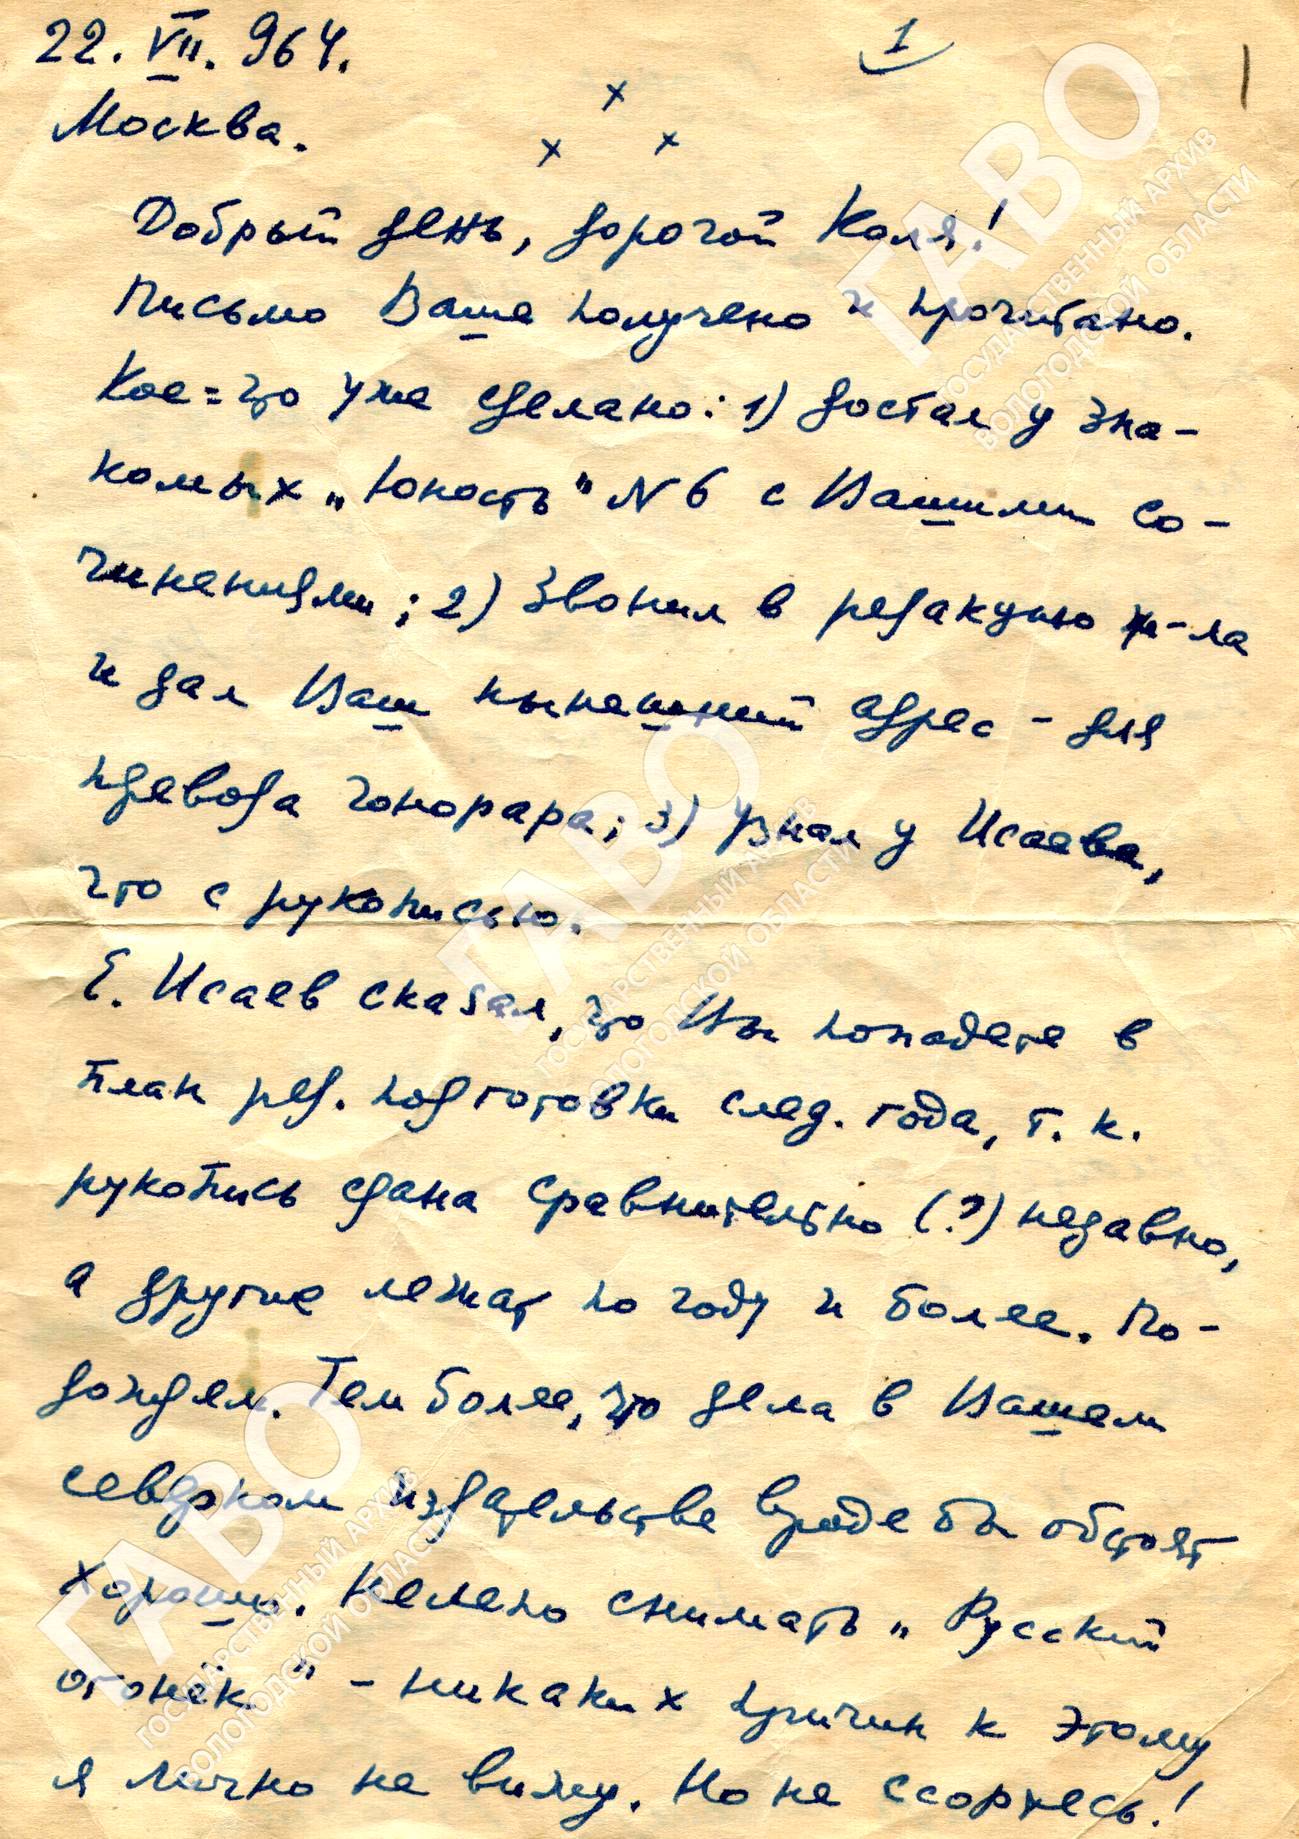 22. VII. 964.
1
Москва.
х
х х
Добрый день, дорогой Коля!
Письмо Ваше получено и прочитано.
Кое=что уже сделано: 1) достал у зна-
комых „Юность" N 6 с Вашими со-
чинениями; 2) Звонил в редакцию ж-ла
и дал Ваш нынешний адрес - для
перевода гонорара; 3) Узнал у Исаева,
что с рукописью.
Е. Исаев сказал, что Вы попадете в
план ред. подготовки след. года, т. к.
рукопись сдана сравнительно (?) недавно,
а другие лежат по году и более. По-
дождем. Тем более, что дела в Вашем
северном издательстве вроде бы обстоят
хорошо. Нелепо снимать „Русский
огонёк" - никаких причин к этому
я лично не вижу. Но не ссорьтесь!
ГАВО
ГОСУДАРСТВЕННЫЙ АРХИВ
ВОЛОГОДСКОЙ ОБЛАСТИ
ГАВО
ГОСУДАРСТВЕННЫЙ АРХИВ
ВОЛОГОДСКОЙ ОБЛАСТИ
ГАВО
ГОСУДАРСТВЕННЫЙ АРХИВ
ВОЛОГОДСКОЙ ОБЛАСТИ